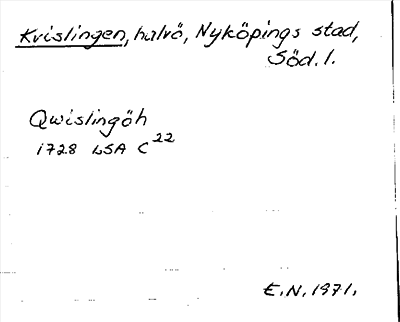 Kvislingen, halvö, Nyköpings stad,
Söd. l.
Qwislingöh
1728 LSA C22
E.N. 1971.